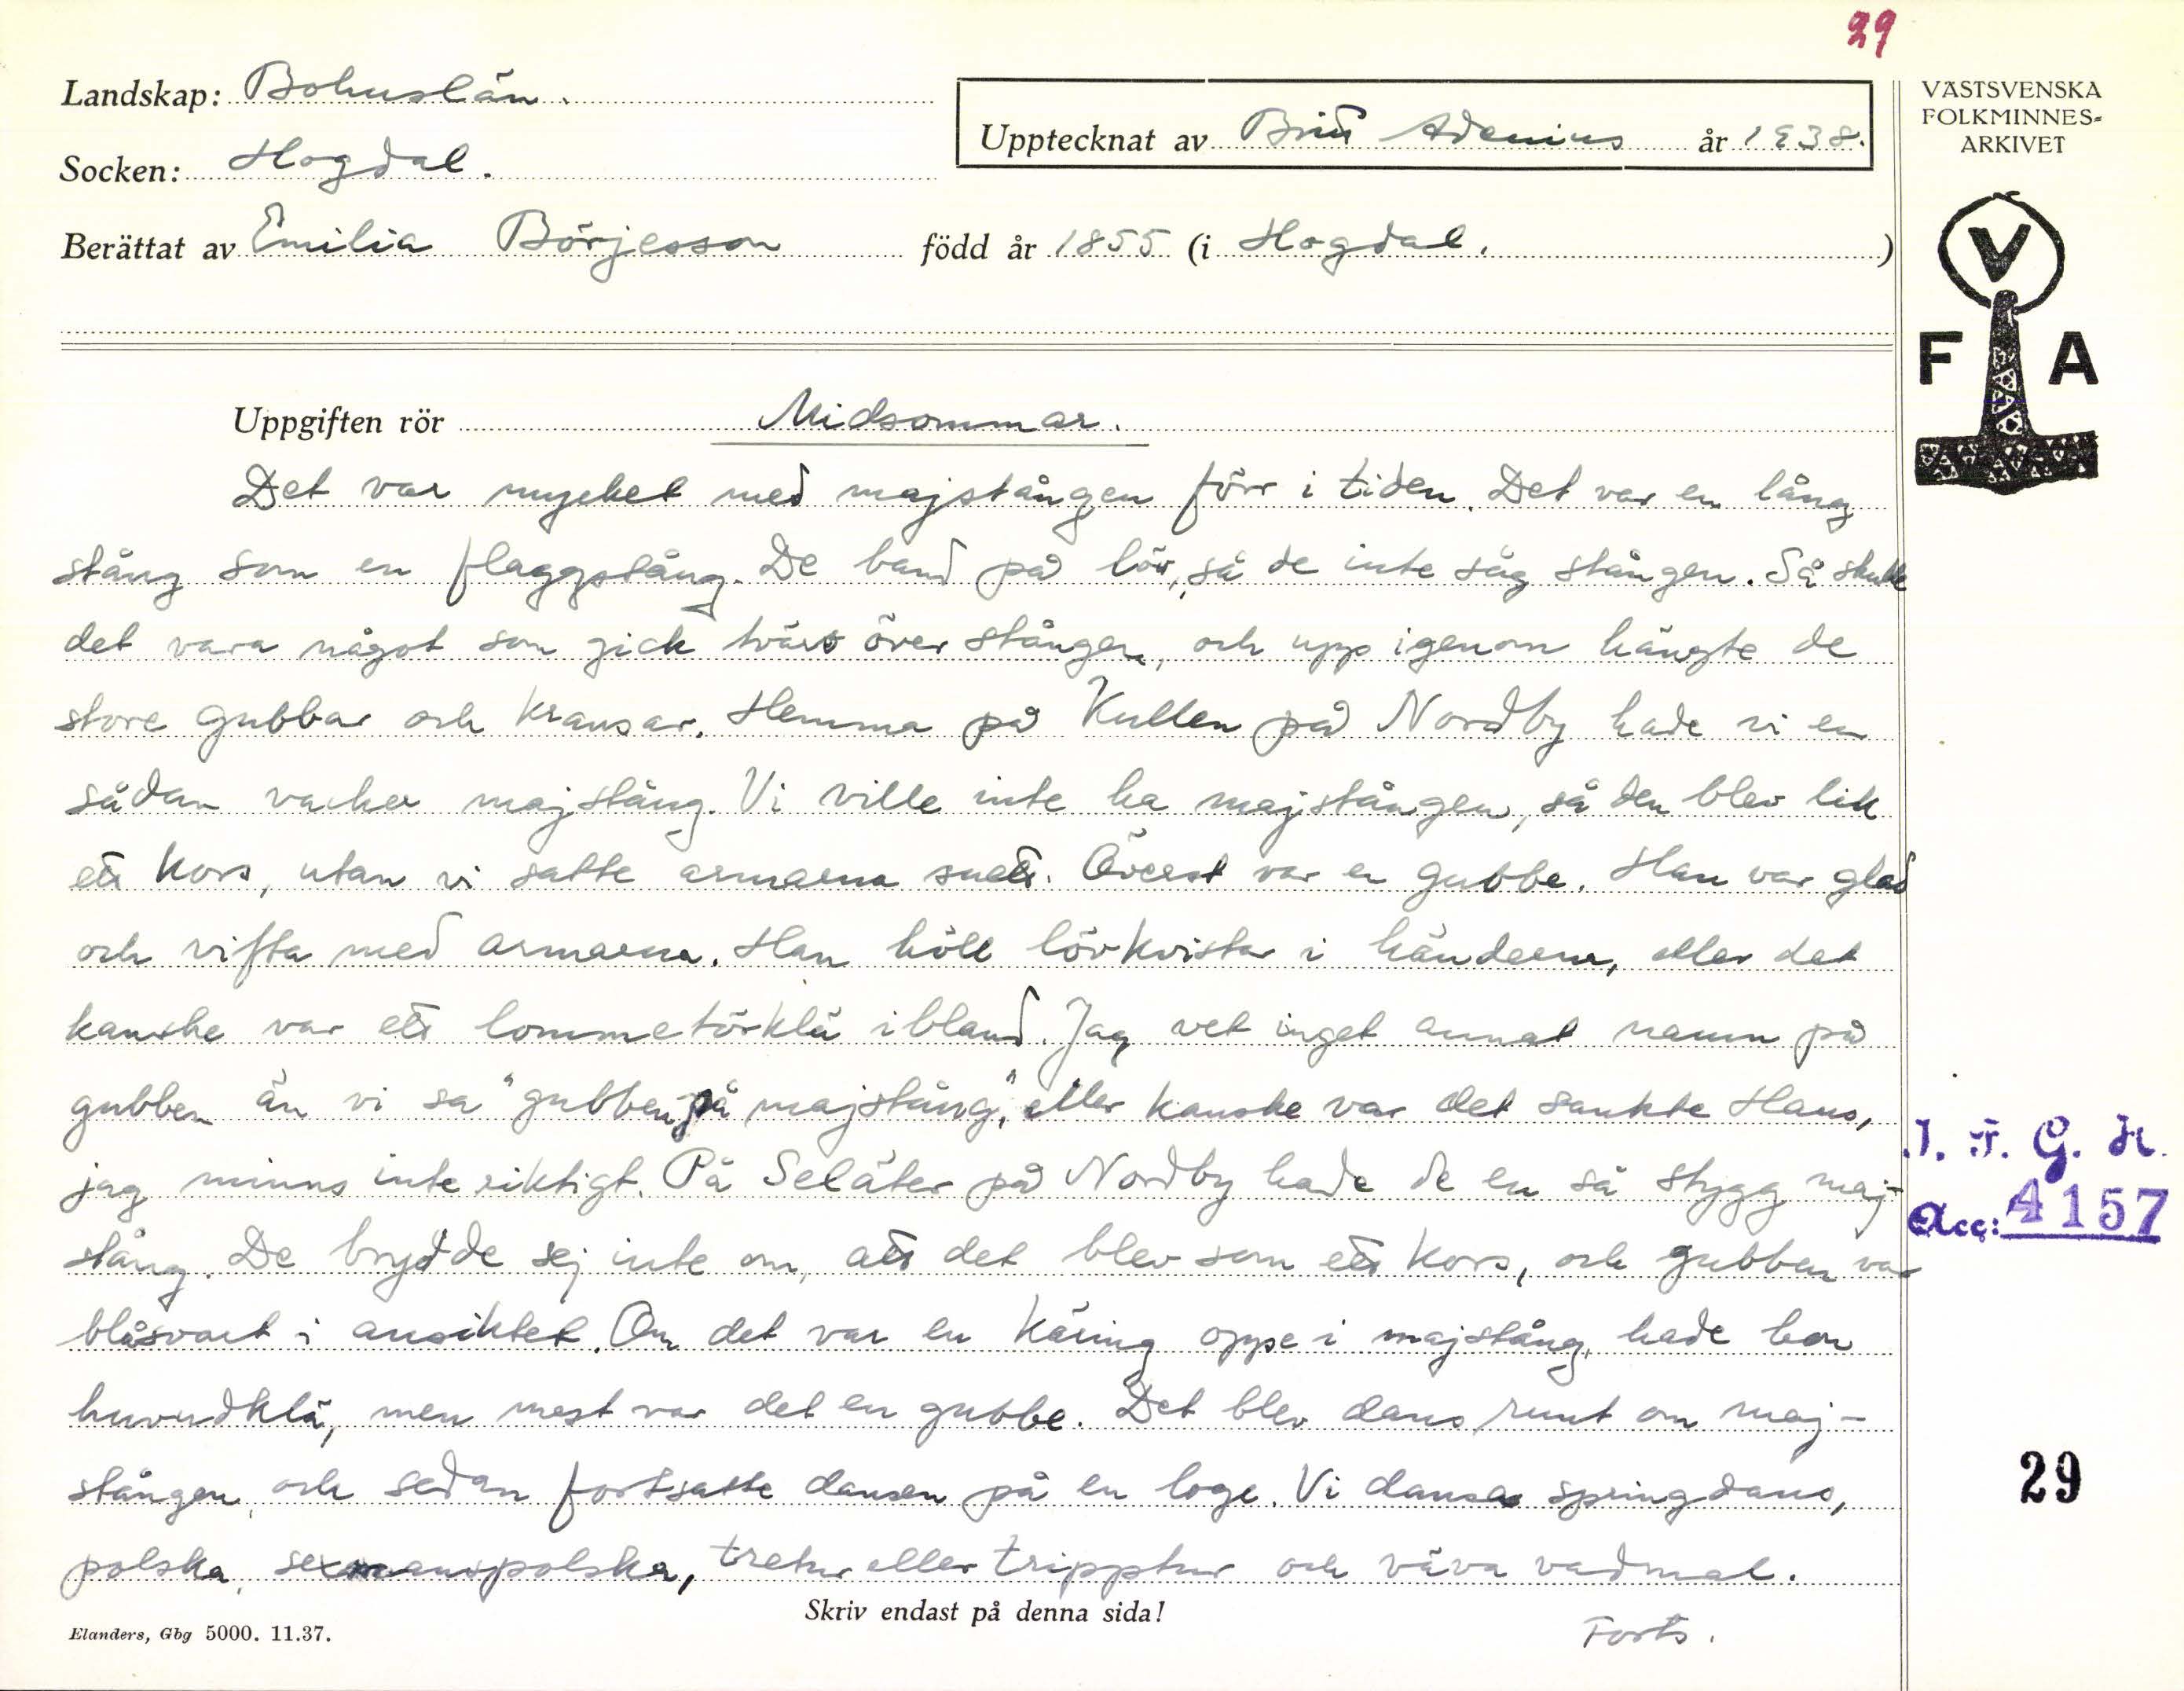 29
Landskap: Bohuslän.
Socken: Hogdal.
Upptecknat av Britt Adenius år 1938.
Berättat av Emilia Börjesson född år 1855 (i Hogdal. )
VÄSTSVENSKA
FOLKMINNES-
ARKIVET
V
F A
Uppgiften rör Midsommar.
Det var mycket med majstången förr i tiden. Det var en lång
stång som en flaggstång. De band på löv, så de inte såg stången. Så skulle
det vara något som gick tvärs över stången, och upp igenom hängte de
store gubbar och kransar. Hemma på Kullen på Nordby hade vi en
sådan vacker majstång. Vi ville inte ha majstången, så den blev lik
ett kors, utan vi satte armarna snett. Överst var en gubbe. Han var glad
och vifta med armarna. Han höll lövkvistar i händerna, eller det
kanske var ett lommetörklä ibland. Jag vet inget annat namn på
gubben än vi sa "gubben på majstång", eller kanske var det sankte Hans,
jag minns inte riktigt. På Seläter på Nordby hade de en så stygg maj-
stång. De brydde sej inte om, att det blev som ett kors, och gubben var
blåsvart i ansiktet. Om det var en käring oppe i majstång, hade hon
huvudklä, men mest var det en gubbe. Det blev dans runt om maj-
stången, och sedan fortsatte dansen på en loge. Vi dansa springdans,
polska, sexmanspolska, tretur eller tripptur och väva vadmal.
Skriv endast på denna sida!
Forts.
Elanders, Gbg 5000. 11.37.
I. F. G. H.
Acc: 4157
29